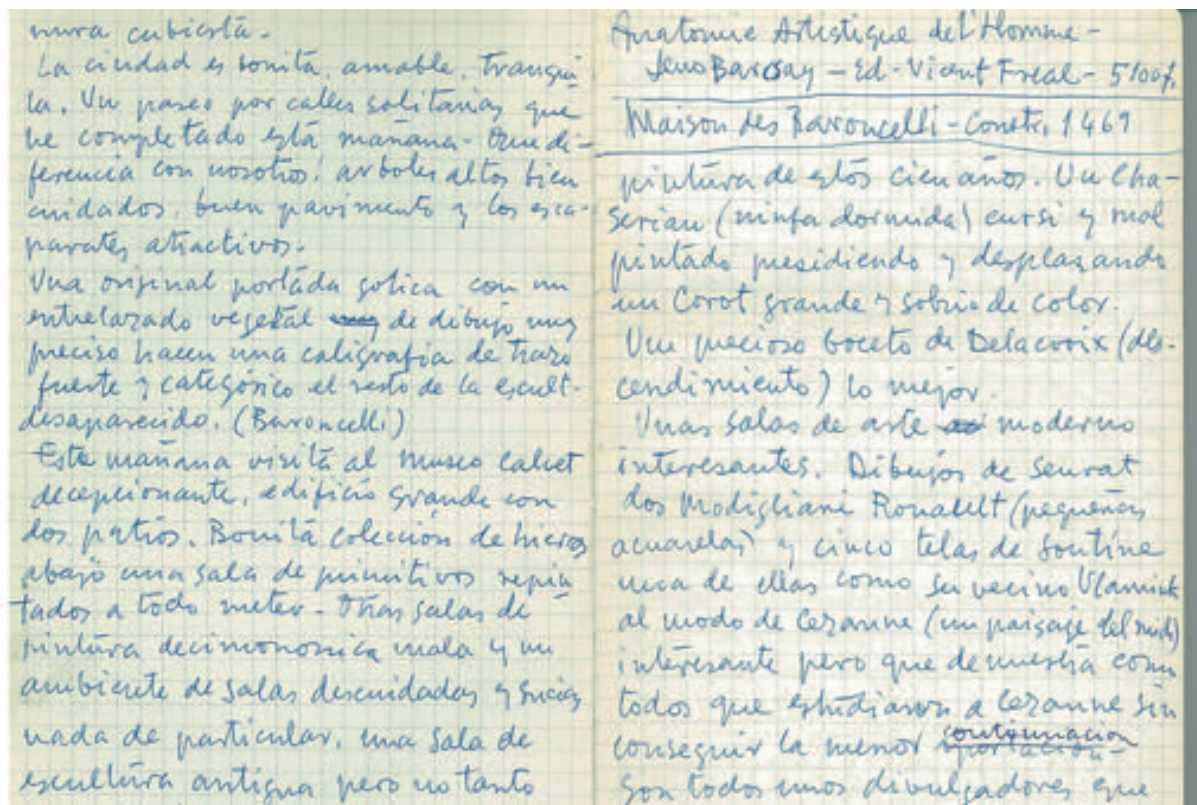 nura cubierta.
La ciudad es bonita, amable, tranqui
la. Un paseo por calles solitarias que
he completado esta mañana - Que di-
ferencia con nosotros! arboles altos bien
cuidados, buen pavimento y los esca-
parates atractivos.
Una original portada gotica con un
entrelazado vegetal de dibujo muy
preciso hacen una caligrafia de trazo
fuerte y categórico el resto de la escult.
desaparecido. (Baroncelli)
Esta mañana visita al museo Calvet
decepcionante, edificio grande con
dos patios. Bonita coleccion de hierros
abajo una sala de primitivos repin
tados a todo meter - Otras salas de
pintura decimononica mala y un
ambiente de salas descuidadas y sucias
nada de particular, una sala de
escultura antigua pero no tanto
Anatomie Artistique de l'Homme -
Jeno Barcsay - Ed. Vicent Freal - 5100f.
Maison des Baroncelli - constr. 1469
pintura de estos cien años. Un Cha-
seriau (ninfa dormida) cursi y mal
pintado presidiendo y desplazando
un Corot grande y sobrio de color.
Un precioso boceto de Delacroix (des-
cendimiento) lo mejor.
Unas salas de arte moderno
interesantes. Dibujos de Seurat
dos Modigliani Rouault (pequeñas
acuarelas) y cinco telas de Soutine
una de ellas como su vecino Vlamink
al modo de Cezanne (un paisaje del midi)
interesante pero que demuestra como
todos que estudiaron a Cezanne sin
conseguir la menor continuacion
Son todos unos divulgadores que